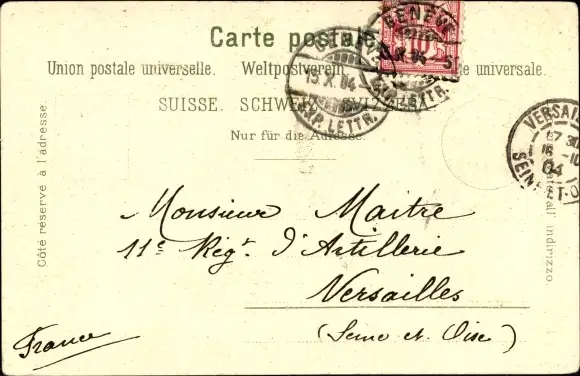 Carte postale
Union postale universelle. Weltpostverein. universale.
SUISSE. SCHWEIZ. SVIZZERA.
Nur für die Adresse.
Côté réservé à l'adresse.
all' indirizzo.
GENÈV
15.X.04
EXP. LETTR.
10
VERSAIL
SEINE-ET-O
04
Monsieur Maitre
11e Régt. d'Artillerie
Versailles
(Seine et Oise)
France